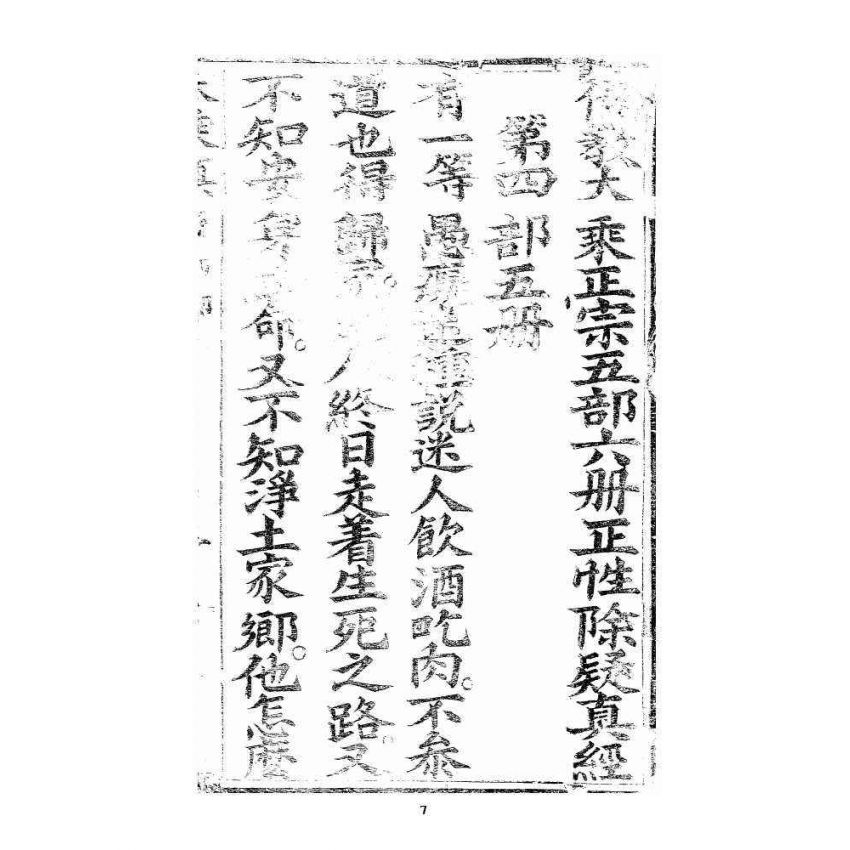 佛教大乘正宗五部六册正性除疑真經
第四部五册
有一等愚癡種說迷人飲酒吃肉。不叅
道也得歸家。人終日走着生死之路。又
不知安身命。又不知淨土家鄉。他怎麽
7